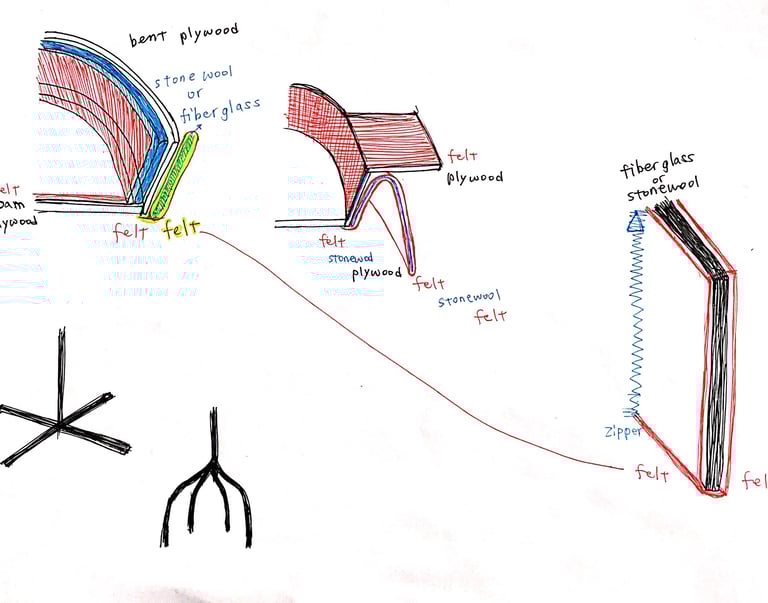 bent plywood
stone wool
or
fiberglass
felt felt
felt
plywood
felt
stonewool
plywood
felt
stonewool
felt
fiberglass
or
stonewool
zipper
felt